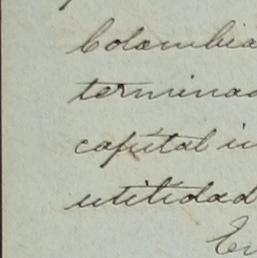 Colombia
terminad
capital in
utilidad
En